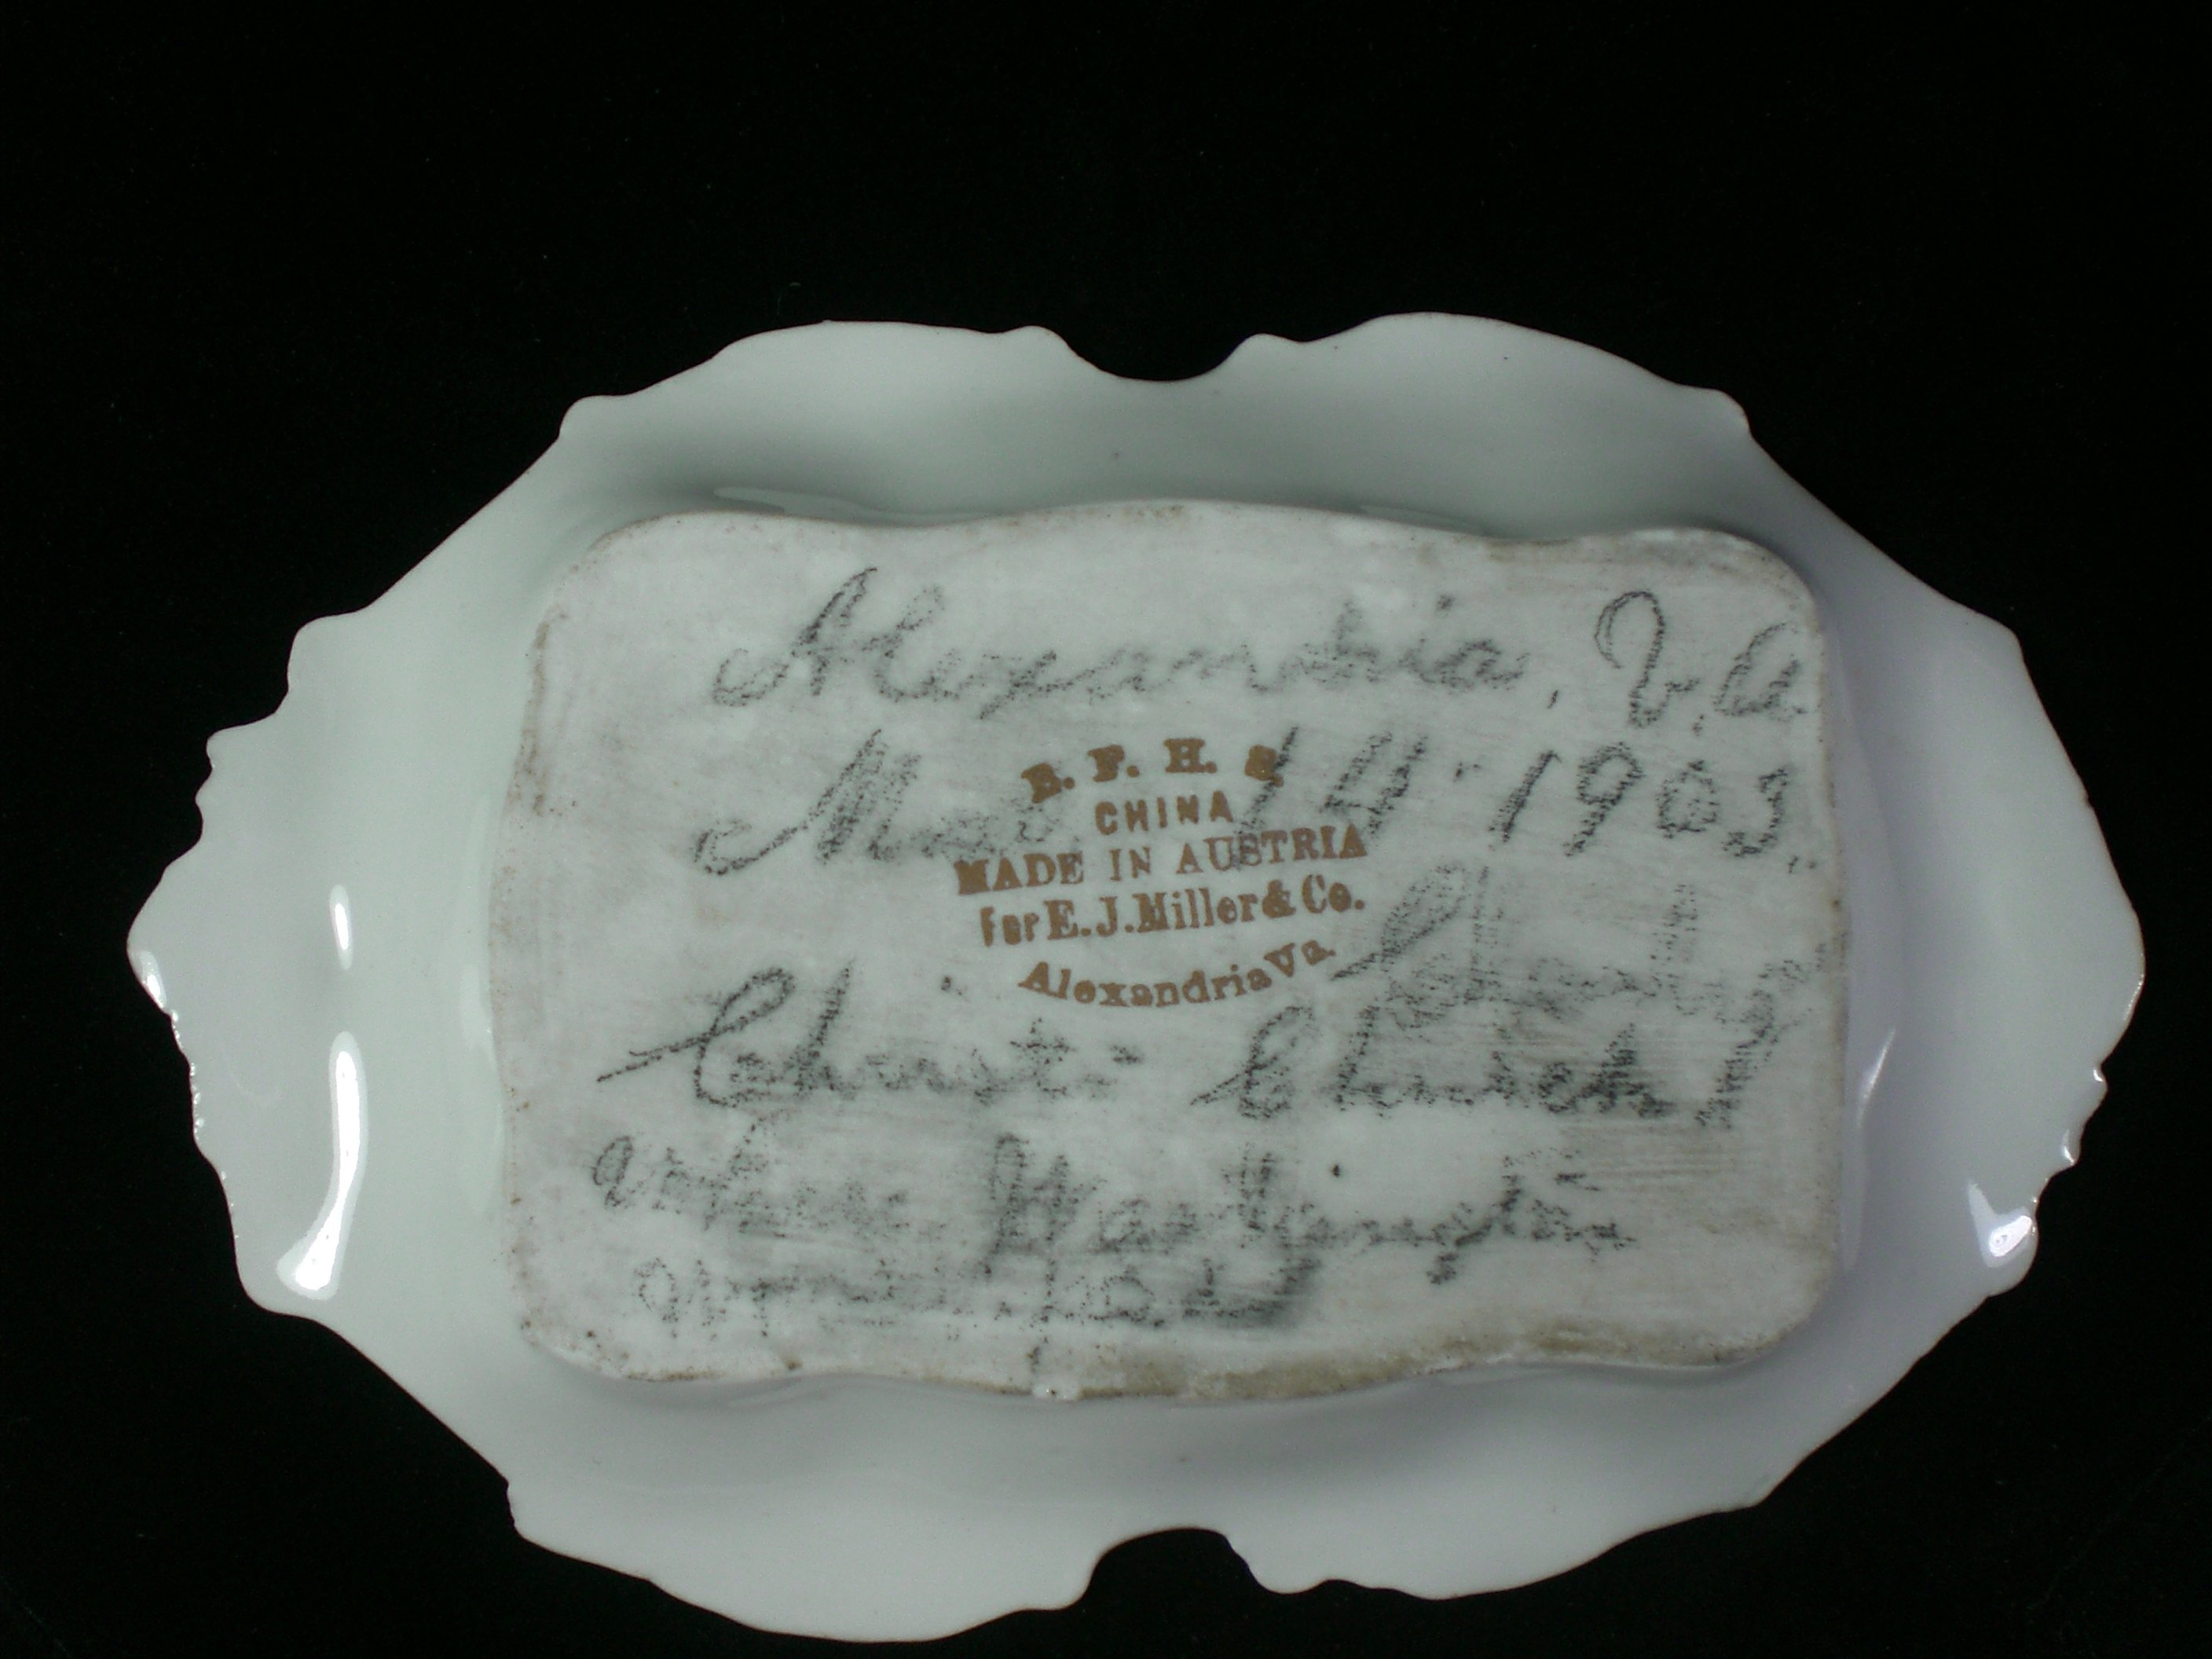 Alexandria, V.A.
14 - 1903.
B. F. H. S.
CHINA
MADE IN AUSTRIA
for E. J. Miller & Co.
Alexandria Va.
Christ Church
where Washington